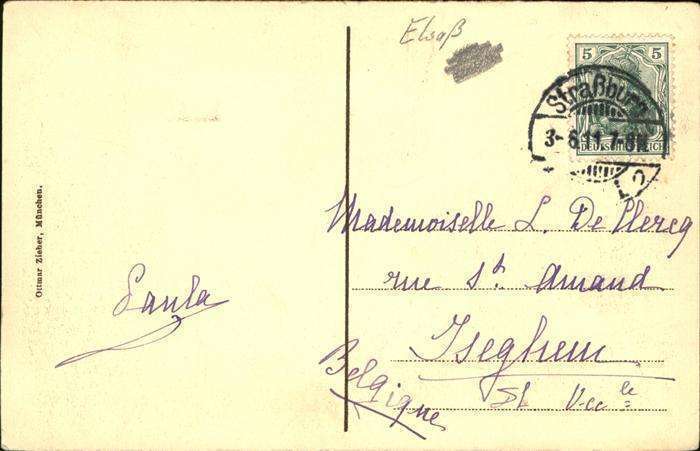 Elsaß
5 5
DEUTSCHES REICH
Straßburg
3-6.11.7-8N.
Ottmar Zieher, München.
Paula
Mademoiselle L. De Clercq
rue St. Amand
Iseghem
Belgique